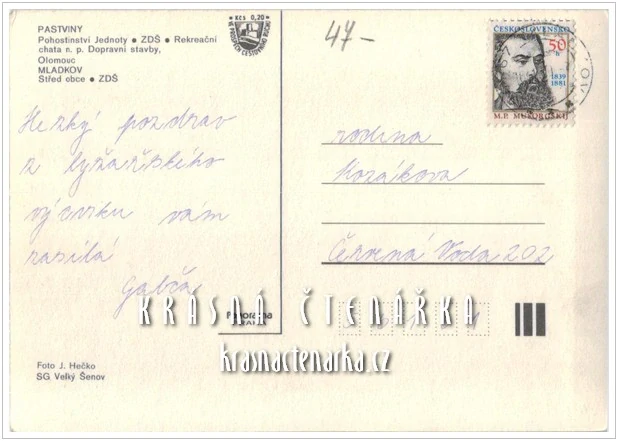 PASTVINY
Pohostinství Jednoty • ZDŠ • Rekreační
chata n. p. Dopravní stavby,
Olomouc
MLADKOV
Střed obce • ZDŠ
Kčs 0,20
47-
ČESKOSLOVENSKO
50
h
1839
1881
M. P. MUSORGSKIJ
Hezký pozdrav
z lyžařského
výcviku vám
zasílá
Gabča
rodina
Kozákova
Červená Voda 202
Panorama
PRAHA
KRÁSNÁ ČTENÁŘKA
krasnactenarka.cz
Foto J. Hečko
SG Velký Šenov